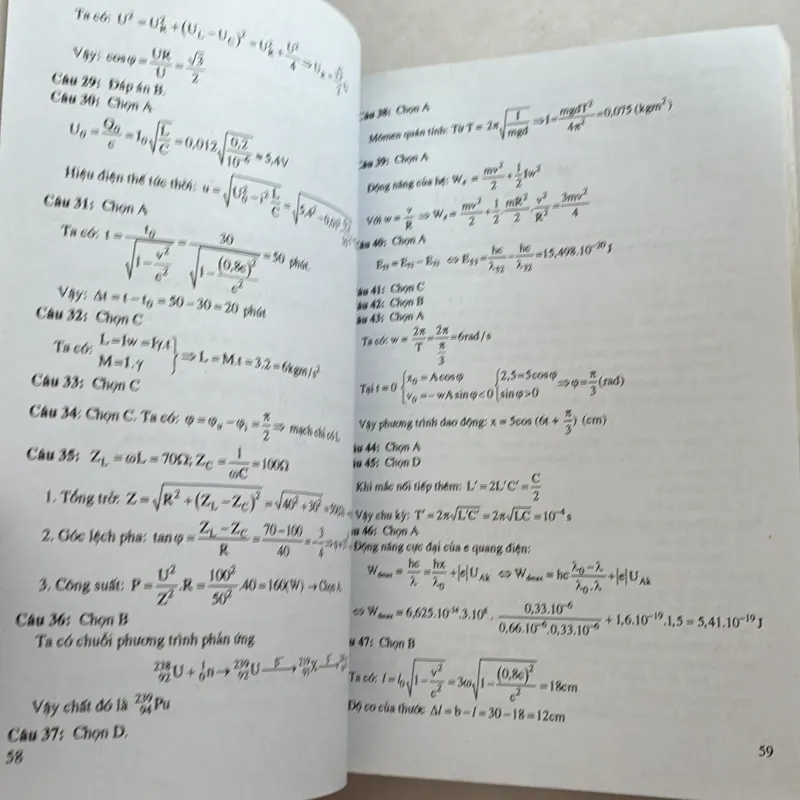 Ta có: U² = U²_R + (U_L − U_C)² = U²_R + U²/4 ⇒ U_R =
Vậy: cosφ = UR/U = √3/2
Câu 29: Đáp án B.
Câu 30: Chọn A
U₀ = Q₀/c = I₀√(L/C) = 0,012√(0,2/10⁻⁶) ≈ 5,4V
Hiệu điện thế tức thời: u = √(U₀² − i² L/C)
Câu 31: Chọn A
Ta có: t = t₀/√(1 − v²/c²) = 30/√(1 − (0,8c)²/c²) = 50 phút.
Vậy: Δt = t − t₀ = 50 − 30 = 20 phút
Câu 32: Chọn C
Ta có: L = Iw = Iγ.t
M = I.γ } ⇒ L = M.t = 3.2 = 6kgm/s²
Câu 33: Chọn C
Câu 34: Chọn C. Ta có: φ = φᵤ − φᵢ = π/2 ⇒ mạch chỉ có L
Câu 35: Z_L = ωL = 70Ω; Z_C = 1/ωC = 100Ω
1. Tổng trở: Z = √(R² + (Z_L − Z_C)²) = √(40² + 30²) = 50Ω
2. Góc lệch pha: tanφ = (Z_L − Z_C)/R = (70 − 100)/40 = −3/4
3. Công suất: P = U²/Z².R = 100²/50².40 = 160(W) → Chọn A
Câu 36: Chọn B
Ta có chuỗi phương trình phản ứng
²³⁸₉₂U + ¹₀n → ²³⁹₉₂U
Vậy chất đó là ²³⁹₉₄Pu
Câu 37: Chọn D.
58
Câu 38: Chọn A
Mômen quán tính: Từ T = 2π√(1/mgd) ⇒ I = mgdT²/4π² = 0,075 (kgm²)
Câu 39: Chọn A
Động năng của hệ: W_đ = mv²/2 + 1/2 Iw²
Với w = v/R ⇒ W_đ = mv²/2 + 1/2.mR²/2.v²/R² = 3mv²/4
Câu 40: Chọn A
= hc/λ₃₂ − hc/λ₃₂ = 15,498.10⁻²⁰J
âu 41: Chọn C
âu 42: Chọn B
âu 43: Chọn A
Ta có: w = 2π/T = 2π/(π/3) = 6rad/s
Tại t = 0 {x₀ = A cosφ; v₀ = −wA sinφ < 0 {2,5 = 5cosφ; sinφ > 0 ⇒ φ = π/3 (rad)
Vậy phương trình dao động: x = 5cos (6t + π/3) (cm)
âu 44: Chọn A
âu 45: Chọn D
Khi mắc nối tiếp thêm: L' = 2L'C' = C/2
Vậy chu kỳ: T' = 2π√(L'C') = 2π√(LC) = 10⁻⁴s
âu 46: Chọn A
Động năng cực đại của e quang điện:
W_đmax = hc/λ = hx/λ₀ + |e|U_Ak ⇔ W_đmax = hc (λ₀ − λ)/(λ₀.λ) + |e|U_Ak
⇔ W_đmax = 6,625.10⁻³⁴.3.10⁸ . 0,33.10⁻⁶/(0,66.10⁻⁶.0,33.10⁻⁶) + 1,6.10⁻¹⁹.1,5 = 5,41.10⁻¹⁹J
u 47: Chọn B
Ta có: l = l₀√(1 − v²/c²) = 30√(1 − (0,8c)²/c²) = 18cm
Độ co của thước Δl = b − l = 30 − 18 = 12cm
59